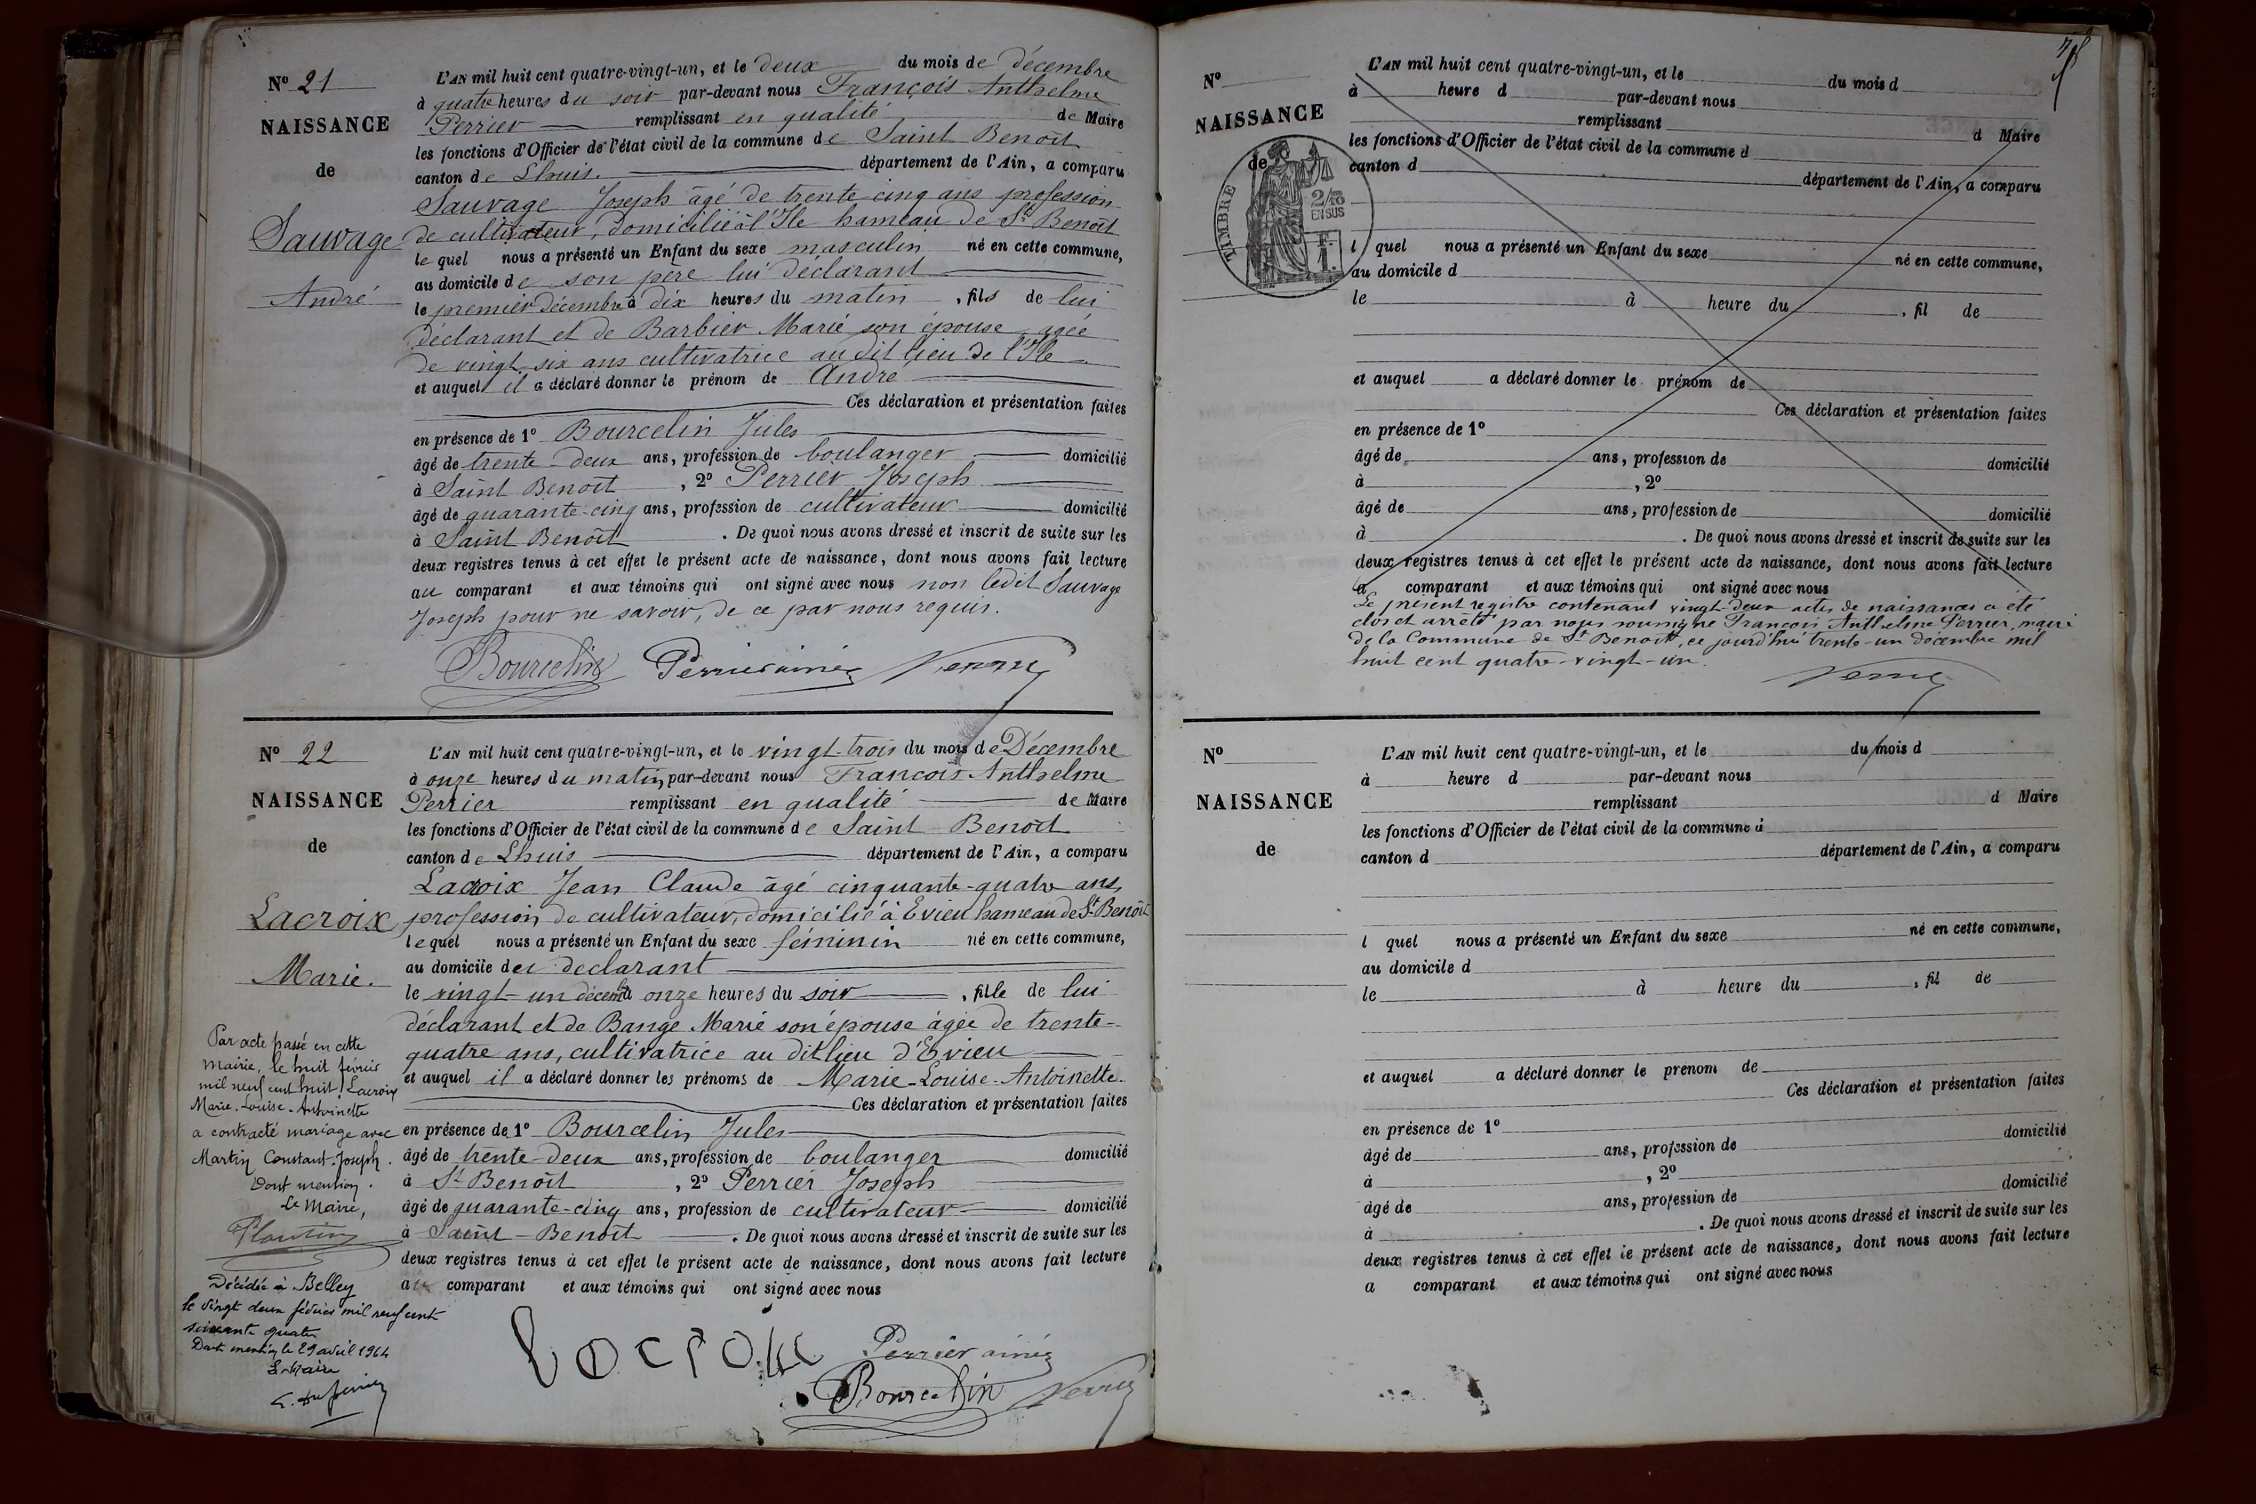 Nº 21
NAISSANCE
de
Sauvage
André
L'AN mil huit cent quatre-vingt-un, et le deux du mois de décembre
à quatre heures du soir par-devant nous François Anthelme
Perrier remplissant en qualité de Maire
les fonctions d'Officier de l'état civil de la commune de Saint Benoit
canton de Lhuis. département de l'Ain, a comparu
Sauvage Joseph âgé de trente cinq ans profession
de cultivateur, domicilié à l'Ile hameau de St Benoît
le quel nous a présenté un Enfant du sexe masculin né en cette commune,
au domicile de son père lui déclarant
le premier décembre à dix heures du matin, fils de lui
déclarant et de Barbier Marie son épouse agée
de vingt six ans cultivatrice au dit lieu de l'Ile
et auquel il a déclaré donner le prénom de André
Ces déclaration et présentation faites
en présence de 1º Bourcelin Jules
âgé de trente-deux ans, profession de boulanger domicilié
à Saint Benoit, 2º Perrier Joseph
âgé de quarante-cinq ans, profession de cultivateur domicilié
à Saint Benoit. De quoi nous avons dressé et inscrit de suite sur les
deux registres tenus à cet effet le présent acte de naissance, dont nous avons fait lecture
au comparant et aux témoins qui ont signé avec nous non ledit Sauvage
Joseph pour ne savoir, de ce par nous requis.
Bourcelin Perrier ainé
Nº 22
NAISSANCE
de
Lacroix
Marie.
L'AN mil huit cent quatre-vingt-un, et le vingt-trois du mois de Décembre
à onze heures du matin, par-devant nous François Anthelme
Perrier remplissant en qualité de Maire
les fonctions d'Officier de l'état civil de la commune de Saint Benoit
canton de Lhuis département de l'Ain, a comparu
Lacroix Jean Claude âgé cinquante-quatre ans,
profession de cultivateur, domicilié à Evieu hameau de St Benoît
le quel nous a présenté un Enfant du sexe féminin né en cette commune,
au domicile du déclarant
le vingt-un décembre à onze heures du soir, fille de lui
déclarant et de Bange Marie son épouse âgée de trente-
quatre ans, cultivatrice au dit lieu d'Evieu
et auquel il a déclaré donner les prénoms de Marie-Louise-Antoinette.
Ces déclaration et présentation faites
en présence de 1º Bourcelin Jules
âgé de trente-deux ans, profession de boulanger domicilié
à St Benoît, 2º Perrier Joseph
âgé de quarante-cinq ans, profession de cultivateur domicilié
à Saint-Benoit. De quoi nous avons dressé et inscrit de suite sur les
deux registres tenus à cet effet le présent acte de naissance, dont nous avons fait lecture
au comparant et aux témoins qui ont signé avec nous
Lacroix Perrier ainé
Bourcelin
Par acte passé en cette
Mairie, le huit février
mil neuf cent huit, Lacroix
Marie-Louise-Antoinette
a contracté mariage avec
Martin Constant-Joseph.
Dont mention.
Le Maire,
Plantin
Décédée à Belley
le vingt deux février mil neuf cent
soixante quatre
Dont mention le 29 avril 1964
Le Maire
Nº
NAISSANCE
de
TIMBRE
2/10
EN SUS
L'AN mil huit cent quatre-vingt-un, et le du mois d
à heure d par-devant nous
remplissant d Maire
les fonctions d'Officier de l'état civil de la commune d
canton d département de l'Ain, a comparu
l quel nous a présenté un Enfant du sexe né en cette commune,
au domicile d
le à heure du, fil de
et auquel a déclaré donner le prénom de
Ces déclaration et présentation faites
en présence de 1º
âgé de ans, profession de domicilié
à, 2º
âgé de ans, profession de domicilié
à. De quoi nous avons dressé et inscrit de suite sur les
deux registres tenus à cet effet le présent acte de naissance, dont nous avons fait lecture
a comparant et aux témoins qui ont signé avec nous
Le présent registre contenant vingt-deux actes de naissances a été
clos et arrêté par nous soussigné François Anthelme Perrier, maire
de la Commune de St Benoit, ce jourd'hui trente-un décembre mil
huit cent quatre-vingt-un.
Nº
NAISSANCE
de
L'AN mil huit cent quatre-vingt-un, et le du mois d
à heure d par-devant nous
remplissant d Maire
les fonctions d'Officier de l'état civil de la commune d
canton d département de l'Ain, a comparu
l quel nous a présenté un Enfant du sexe né en cette commune,
au domicile d
le à heure du, fil de
et auquel a déclaré donner le prénom de
Ces déclaration et présentation faites
en présence de 1º
âgé de ans, profession de domicilié
à, 2º
âgé de ans, profession de domicilié
à. De quoi nous avons dressé et inscrit de suite sur les
deux registres tenus à cet effet le présent acte de naissance, dont nous avons fait lecture
a comparant et aux témoins qui ont signé avec nous